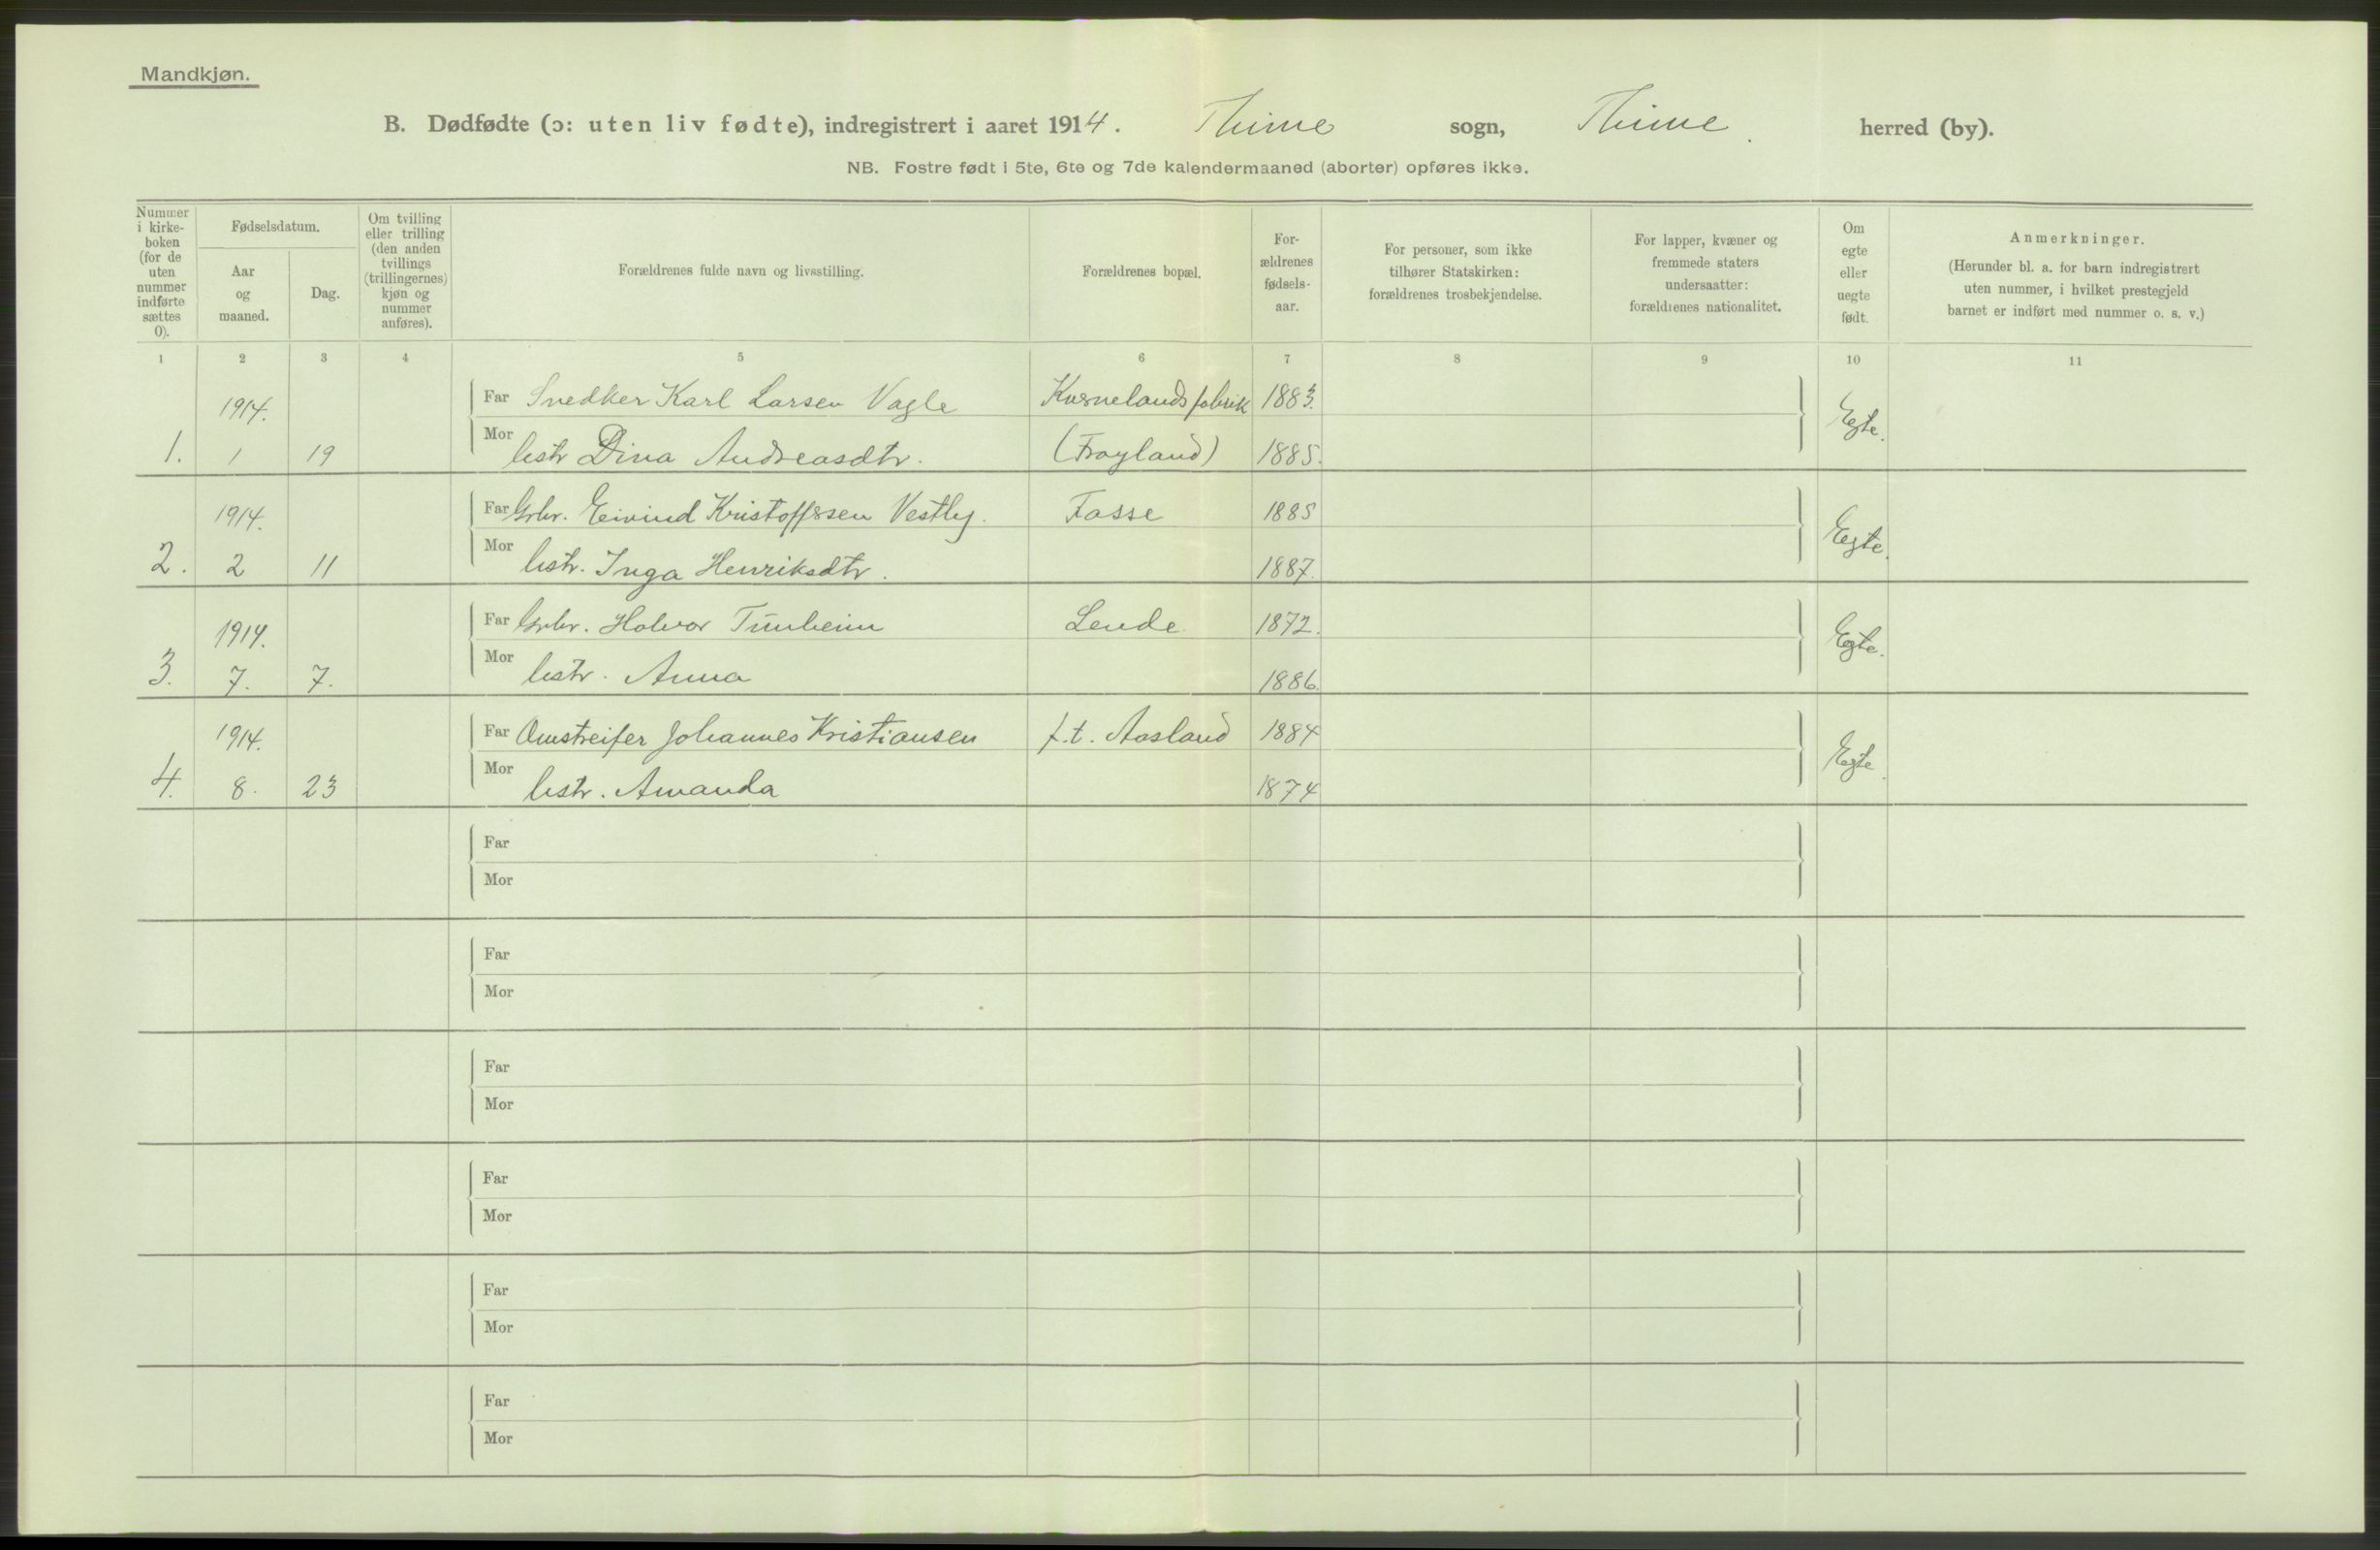 Mandkjøn.
B. Dødfødte (ɔ: uten liv fødte), indregistrert i aaret 1914. Thime sogn, Thime herred (by).
NB. Fostre født i 5te, 6te og 7de kalendermaaned (aborter) opføres ikke.
Nummer i kirke-boken (for de uten nummer indførte sættes 0).
Fødselsdatum.
Aar og maaned.
Dag.
Om tvilling eller trilling (den anden tvillings (trillingernes) kjøn og nummer anføres).
Forældrenes fulde navn og livsstilling.
Forældrenes bopæl.
For-ældrenes fødsels-aar.
For personer, som ikke tilhører Statskirken: forældrenes trosbekjendelse.
For lapper, kvæner og fremmede staters undersaatter: forældrenes nationalitet.
Om egte eller uegte født.
Anmerkninger.
(Herunder bl. a. for barn indregistrert uten nummer, i hvilket prestegjeld barnet er indført med nummer o. s. v.)
1 2 3 4 5 6 7 8 9 10 11
1914. Far Snedker Karl Larsen Vagle Kvernelands fabrik 1883. Egte.
1. 1 19 Mor Dina Andreasdtr. (Frøyland) 1885.
1914. Far Grbr. Eivind Kristoffersen Vestly. Fosse 1885 Egte.
2. 2 11 Mor Inga Henriksdtr. 1887.
1914. Far Grbr. Halvor Tunheim Lende 1872. Egte.
3. 7. 7. Mor Anna 1886.
1914. Far Omstreifer Johannes Kristiansen f.t. Aasland 1884 Egte.
4. 8. 23 Mor Amanda 1874
Far
Mor
Far
Mor
Far
Mor
Far
Mor
Far
Mor
Far
Mor